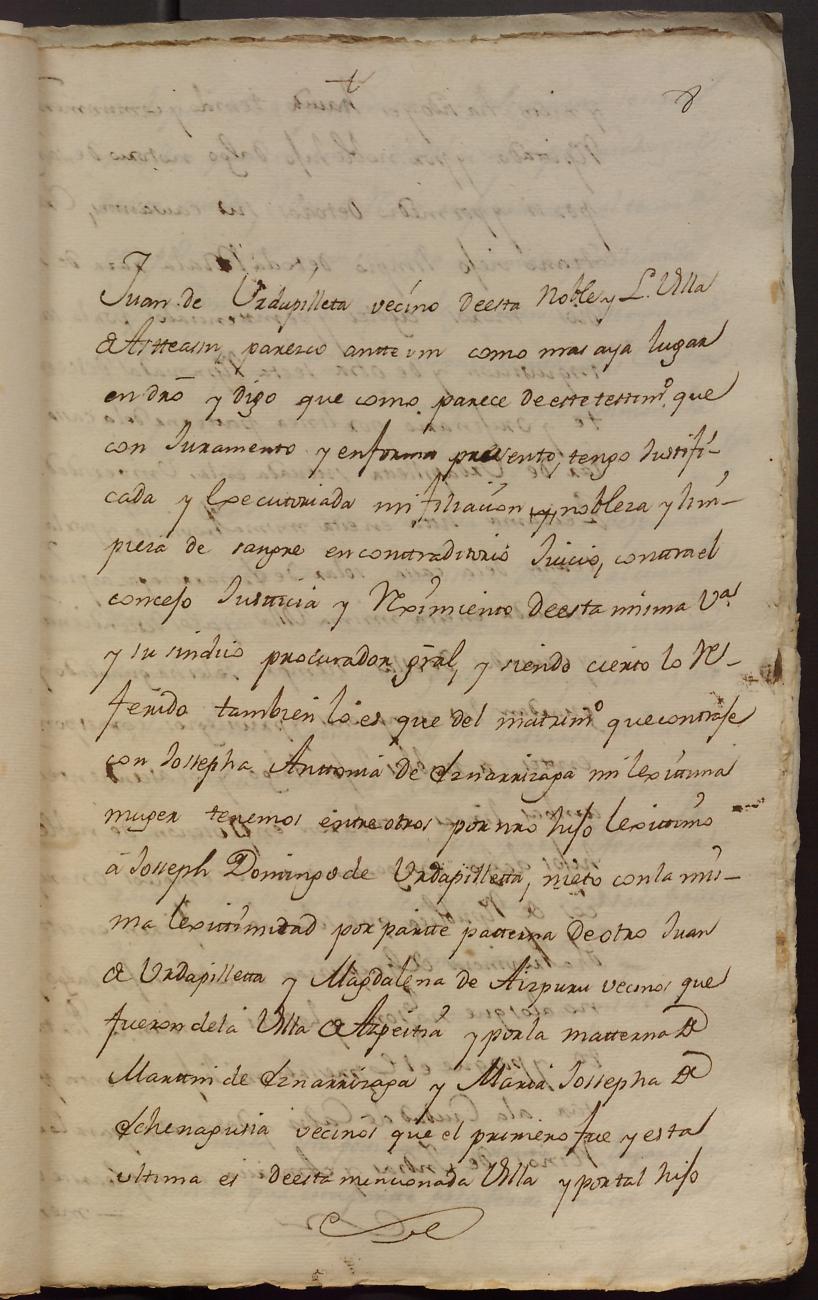 8
Juan de Urdapilleta vecino deesta Noble y L. Villa
de Asteasu, paresco antte vm como mas aya lugar
en dro y digo que como parece de este testimº. que
con Juramento y enforma presento, tengo Justifi-
cada y executoriada mi filiacion y nobleza y lim-
pieza de sangre en conttraditorio Juicio, contra el
concejo Justticia y Reximiento deesta misma Vª
y su sindico procurador gral, y siendo cierto lo Re-
ferido tambien lo es que del matrimº que contraje
con Jossepha Anttonia de Iznarrizaga mi lexittima
muger tenemos entre otros por nro hijo lexittimo
á Joseph Domingo de Urdapilletta, nieto con la mis-
ma lexittimidad por partte patterna de otro Juan
de Urdapilletta y Magdalena de Aizpuru vecinos que
fueron de la Villa de Azpeitia y por la matterna de
Marttin de Iznarrizaga y Maria Jossepha de
Echenagusia vecinos que el primero fue y esta
ultima es deesta mencionada Villa y por tal hijo